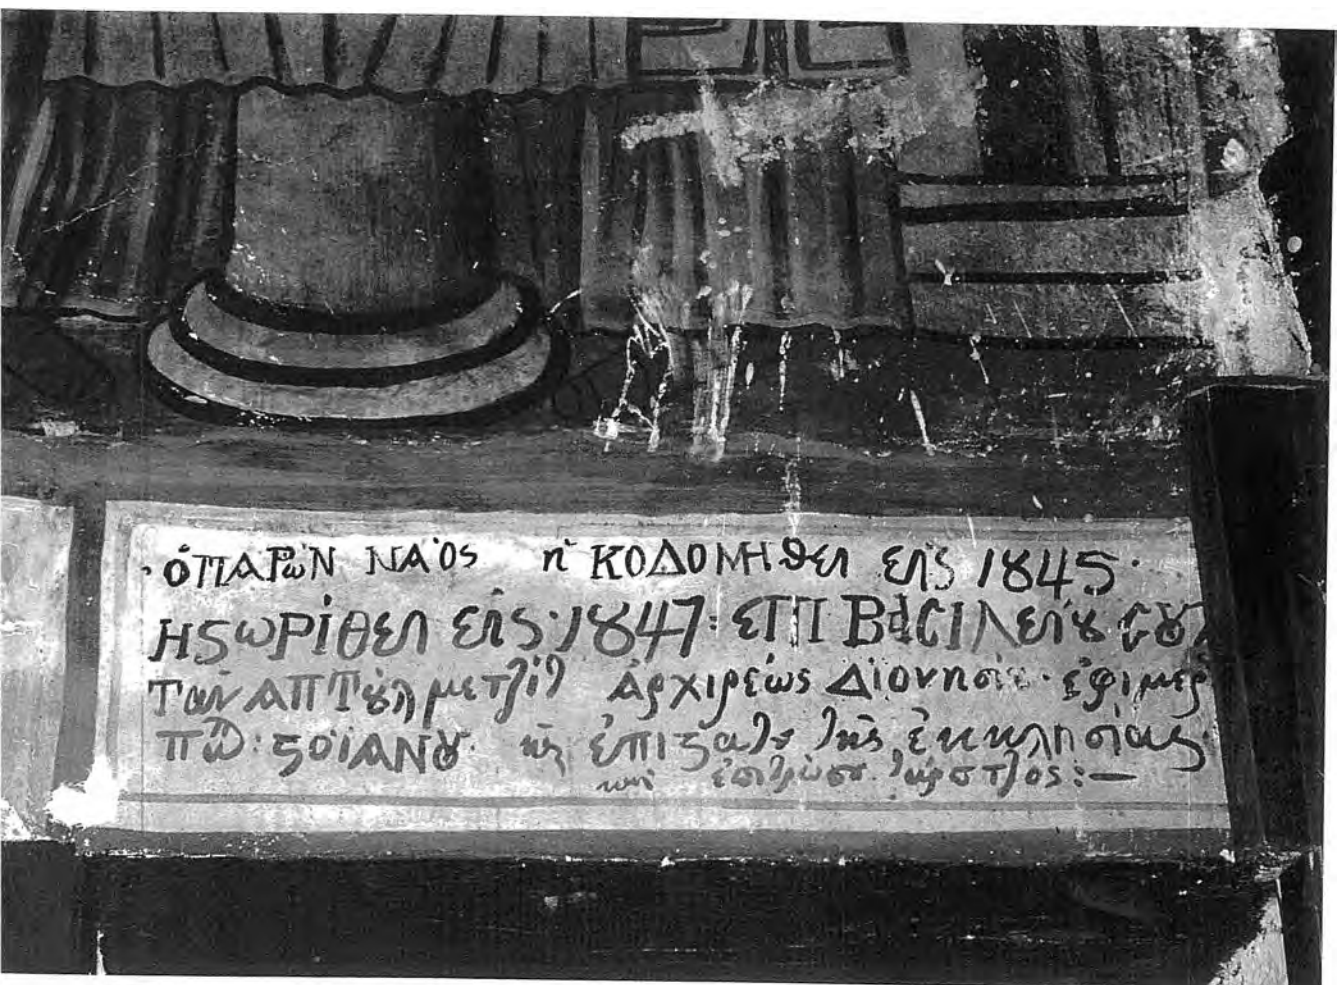 ·ὁΠΑΡῶΝ ΝΑὸς ἠ ΚΟΔΟΜΗθει εἰς 1845·
Ηςωρίθει εἰς·1847· ΕΠΙ ΒαCΙΛείȣ Cȣλ
Τὰν ΑΠΤȣλ μετζίτ ἀρχιρέως Διονησίȣ· ἐφιμερ
ἐπιςατȣ τῆς ἐκκλησίας·